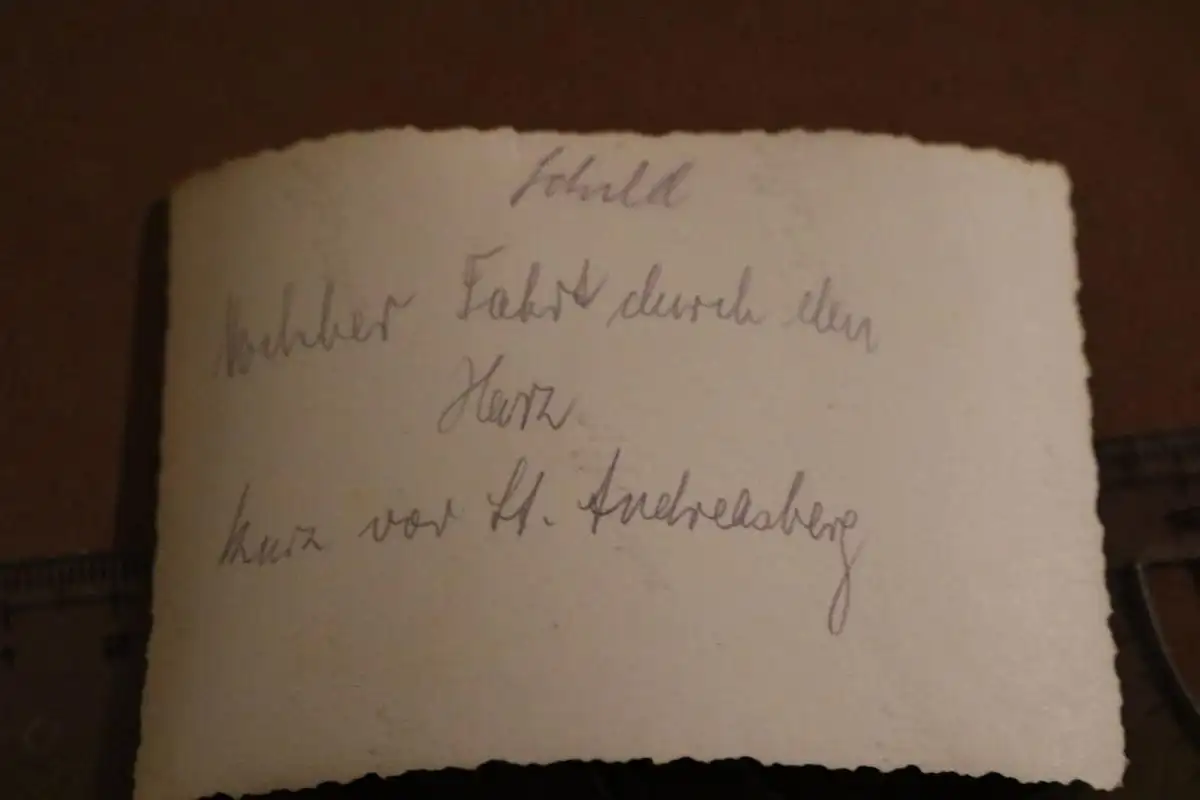 Schuld
Fahrt durch den
Harz
kurz vor St. Andreasberg